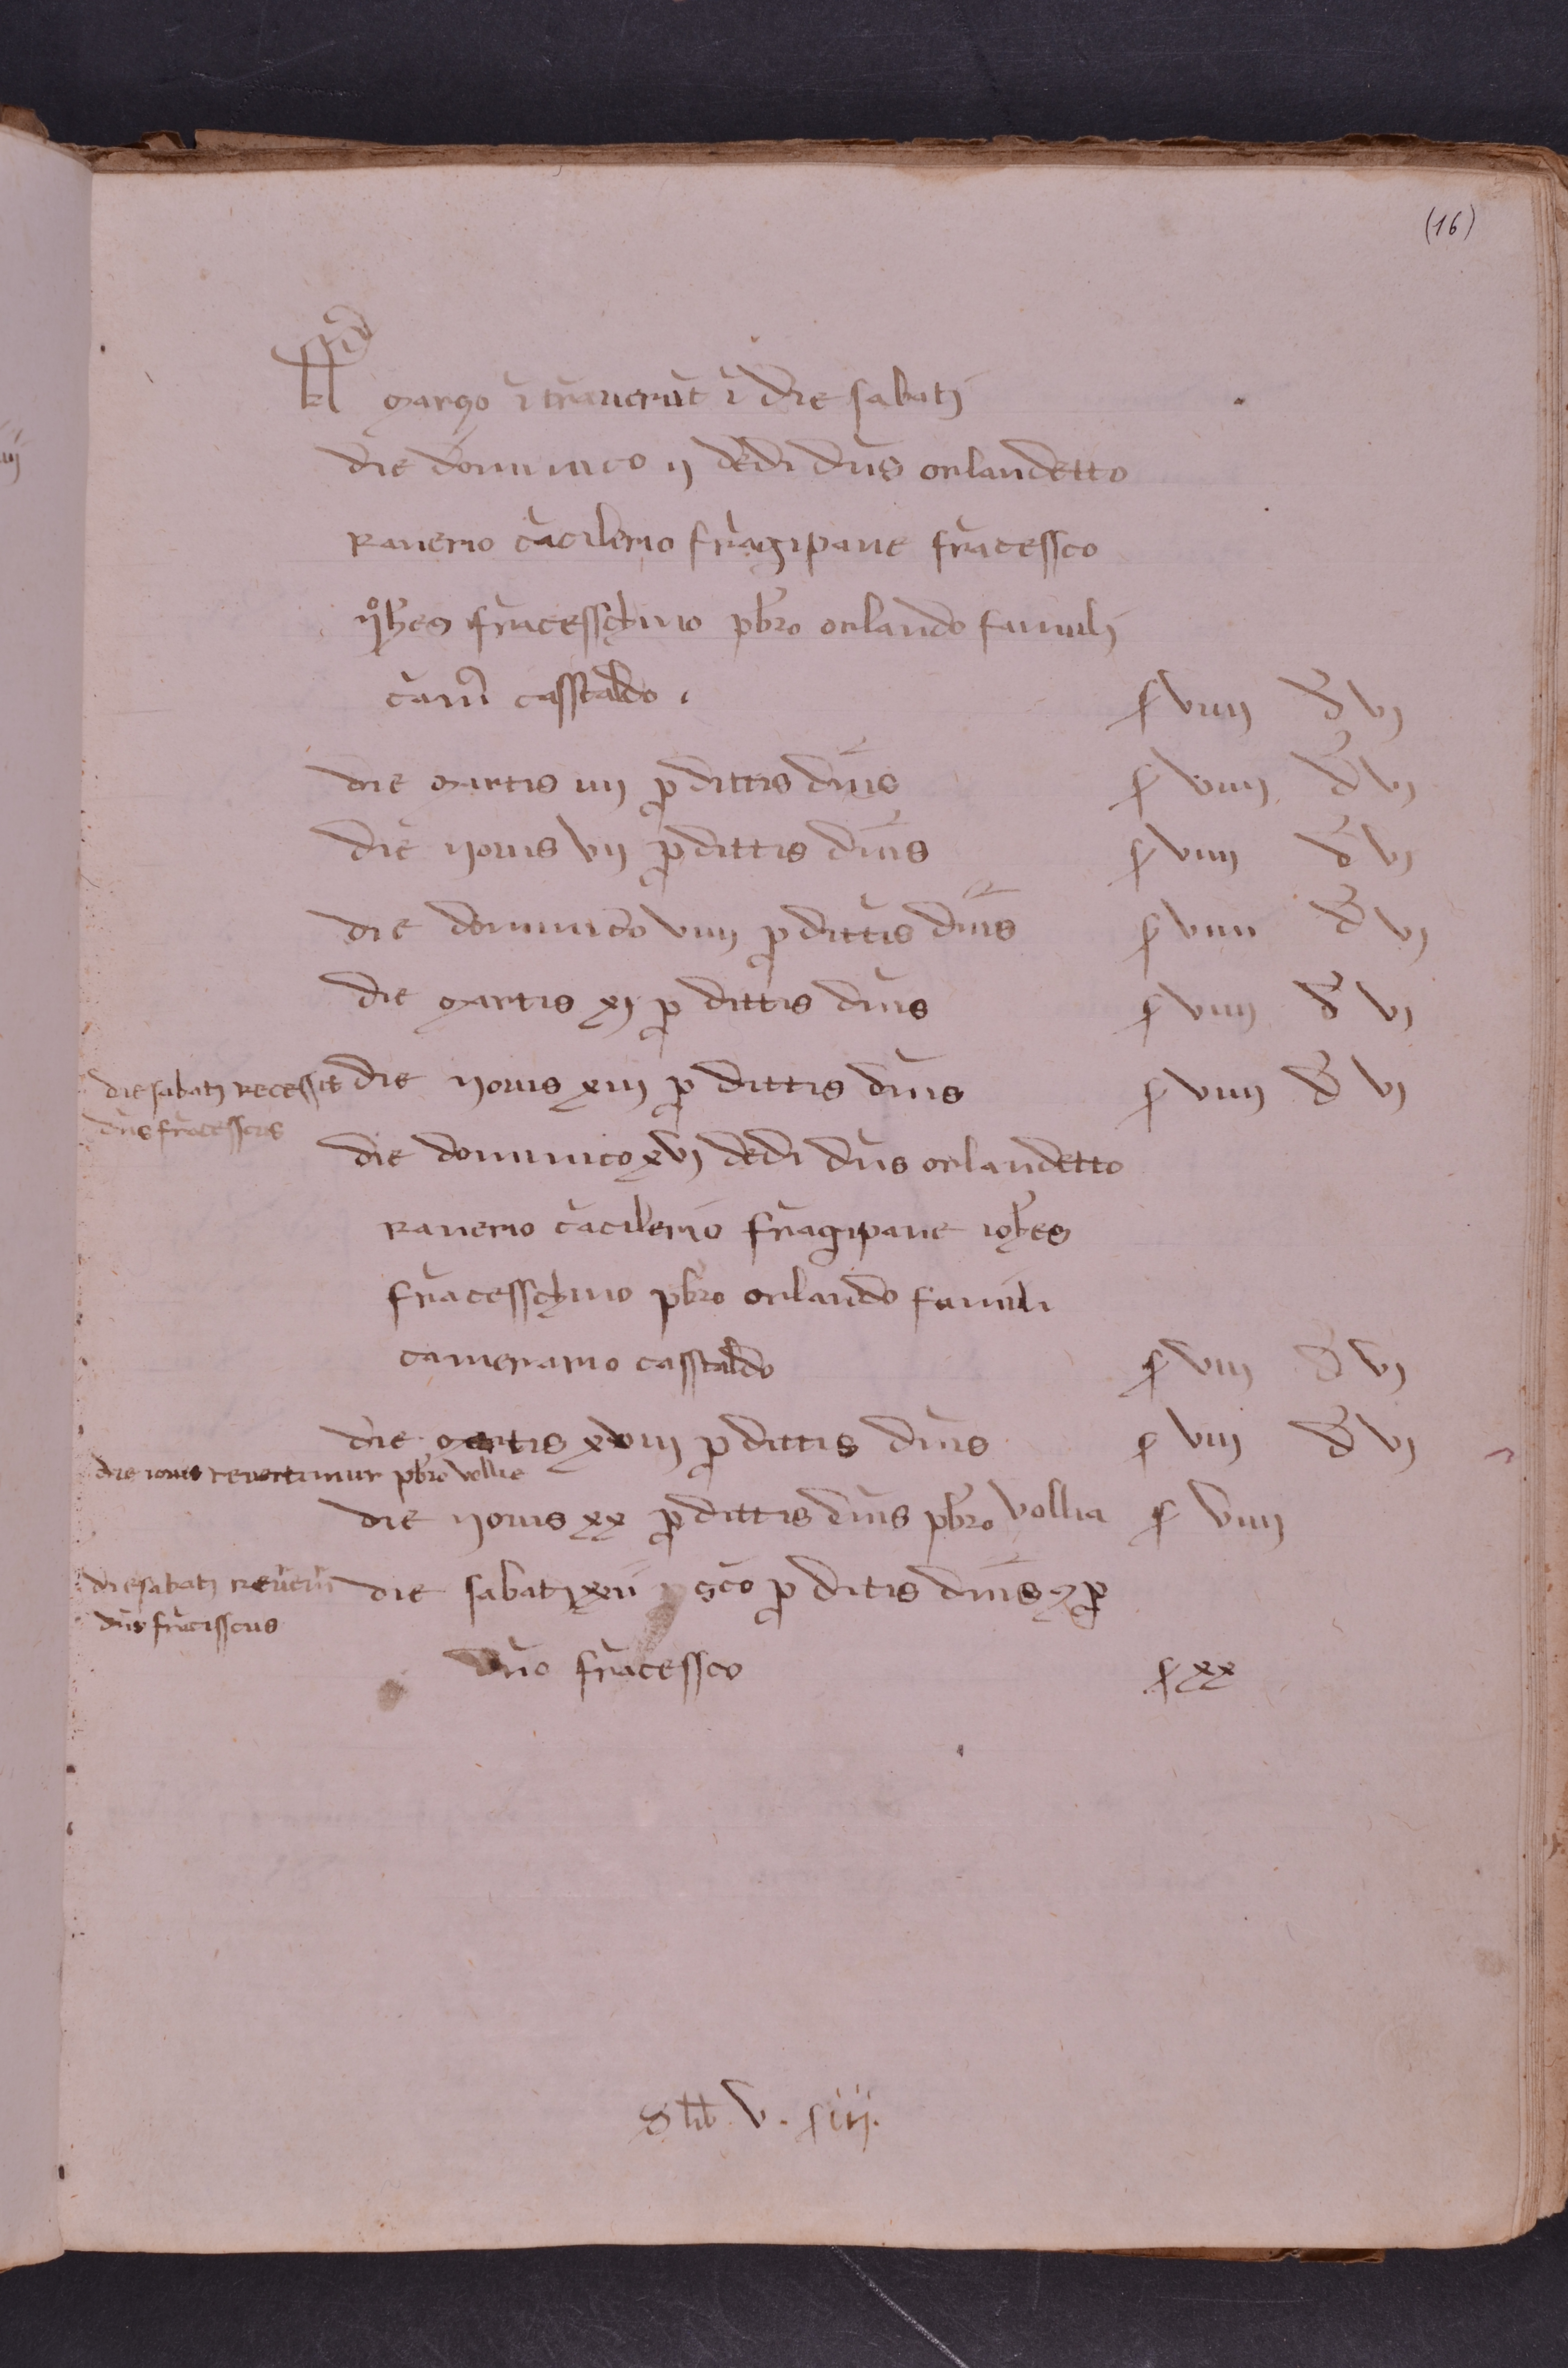 (16)
kl março ī trāuerūt ī die sabatj
die dominico ij dedi dn̄s orlandetto
ranerio cācilerio frāgipane frācessco
ioh̄es frācesschino pb̄ro orlando famulj
cam̄ casstaldo . s viiij d vj
die martis iiij p dittis dn̄is s viiij d vj
die iouis vij p dittis dn̄is s viiij d vj
die dominico viiij p dittis dn̄is s viiij d vj
die martis xj p dittis dn̄is s viiij d vj
die sabatj recessit
dn̄s frācesscus
die iouis xiij p dittis dn̄is s viiij d vj
die dominico xvj dedi dn̄s orlandetto
ranerio cācilerio frāgipane ioh̄es
frācesschino pb̄ro orlando famuli
camerario casstaldo s viij d vj
die martis xviij p dittis dn̄is s viij d vj
die iouis reuertimur pb̄ro vollie
die iouis xx p dittis dn̄is pb̄ro vollia s viiij
die sabatj reuerū
dn̄s frācisscus
die sabatj xxij p ditis dn̄is p
dn̄o frācessco s xx
S lib. v. s iij.